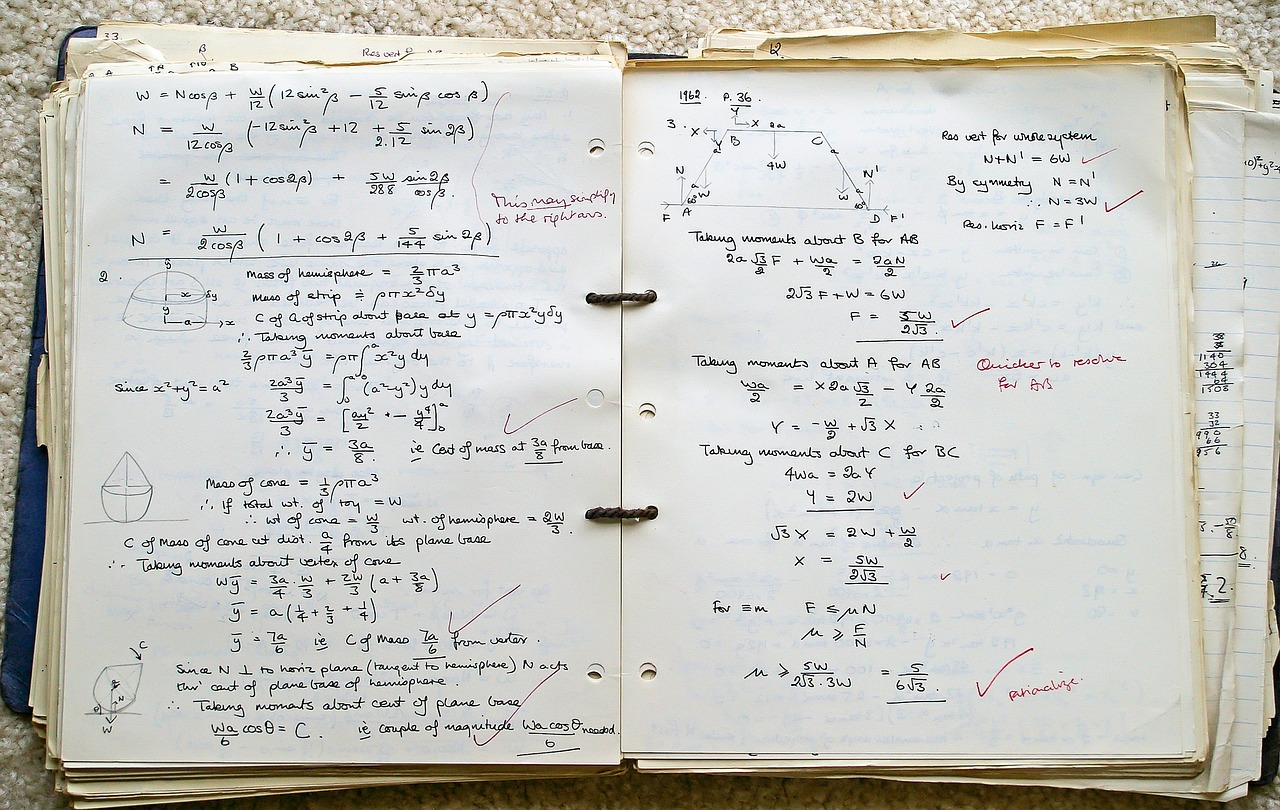 33.
β
Res vert
A B
W = N cos β + W/12 (12 sin²β − 5/12 sin β cos β)
N = W/12cosβ (−12 sin²β + 12 + 5/2.12 sin 2β)
= W/2cosβ (1 + cos 2β) + 5W/288 sin2β/cosβ.
This may simplify
to the right ans.
N = W/2cosβ (1 + cos 2β + 5/144 sin 2β)
2.
y
x δy
y
a x
Mass of hemisphere = 2/3 πa³
Mass of strip ≑ ρπx²δy
C of G of strip about base at y = ρπx²yδy
∴ Taking moments about base
2/3 ρπa³ȳ = ρπ∫₀ᵃ x²y dy
Since x²+y² = a² 2a³ȳ/3 = ∫₀ᵃ (a²−y²) y dy
2a³ȳ/3 = [ay²/2 − y⁴/4]₀ᵃ
∴ ȳ = 3a/8 ie Cent of mass at 3a/8 from base.
Mass of cone = 1/3 ρπa³
∴ If total wt. of toy = W
∴ wt of cone = W/3 wt. of hemisphere = 2W/3.
C of Mass of cone at dist. a/4 from its plane base
∴ Taking moments about vertex of cone
Wȳ = 3a/4 . W/3 + 2W/3 (a + 3a/8)
ȳ = a(1/4 + 2/3 + 1/4)
ȳ = 7a/6 ie C of Mass 7a/6 from vertex.
C
N
θ
W
Since N ⊥ to horiz plane (tangent to hemisphere) N acts
thro' cent of plane base of hemisphere.
∴ Taking moments about cent of plane base
Wa/6 cos θ = C. ie couple of magnitude Wa cos θ/6 needed.
1962. P. 36.
3. X Y X 2a
B C
Y a a
4W
N a a N'
W W
60° 60°
F A D F'
Res vert for whole system
N+N' = 6W
By symmetry N = N'
∴ N = 3W
Res. horiz F = F'
Taking moments about B for AB
2a √3/2 F + Wa/2 = 2aN/2
2√3 F + W = 6W
F = 5W/2√3.
Taking moments about A for AB
Quicker to resolve
for AB
Wa/2 = X 2a √3/2 − Y 2a/2
Y = −W/2 + √3 X
Taking moments about C for BC
4Wa = 2aY
Y = 2W
√3 X = 2W + W/2
X = 5W/2√3
For ≡m F ≤ μN
μ ≥ F/N
μ ≥ 5W/2√3 . 3W = 5/6√3.
rationalize.
38
38
1140
304
1444
64
1508
33
32
990
66
956